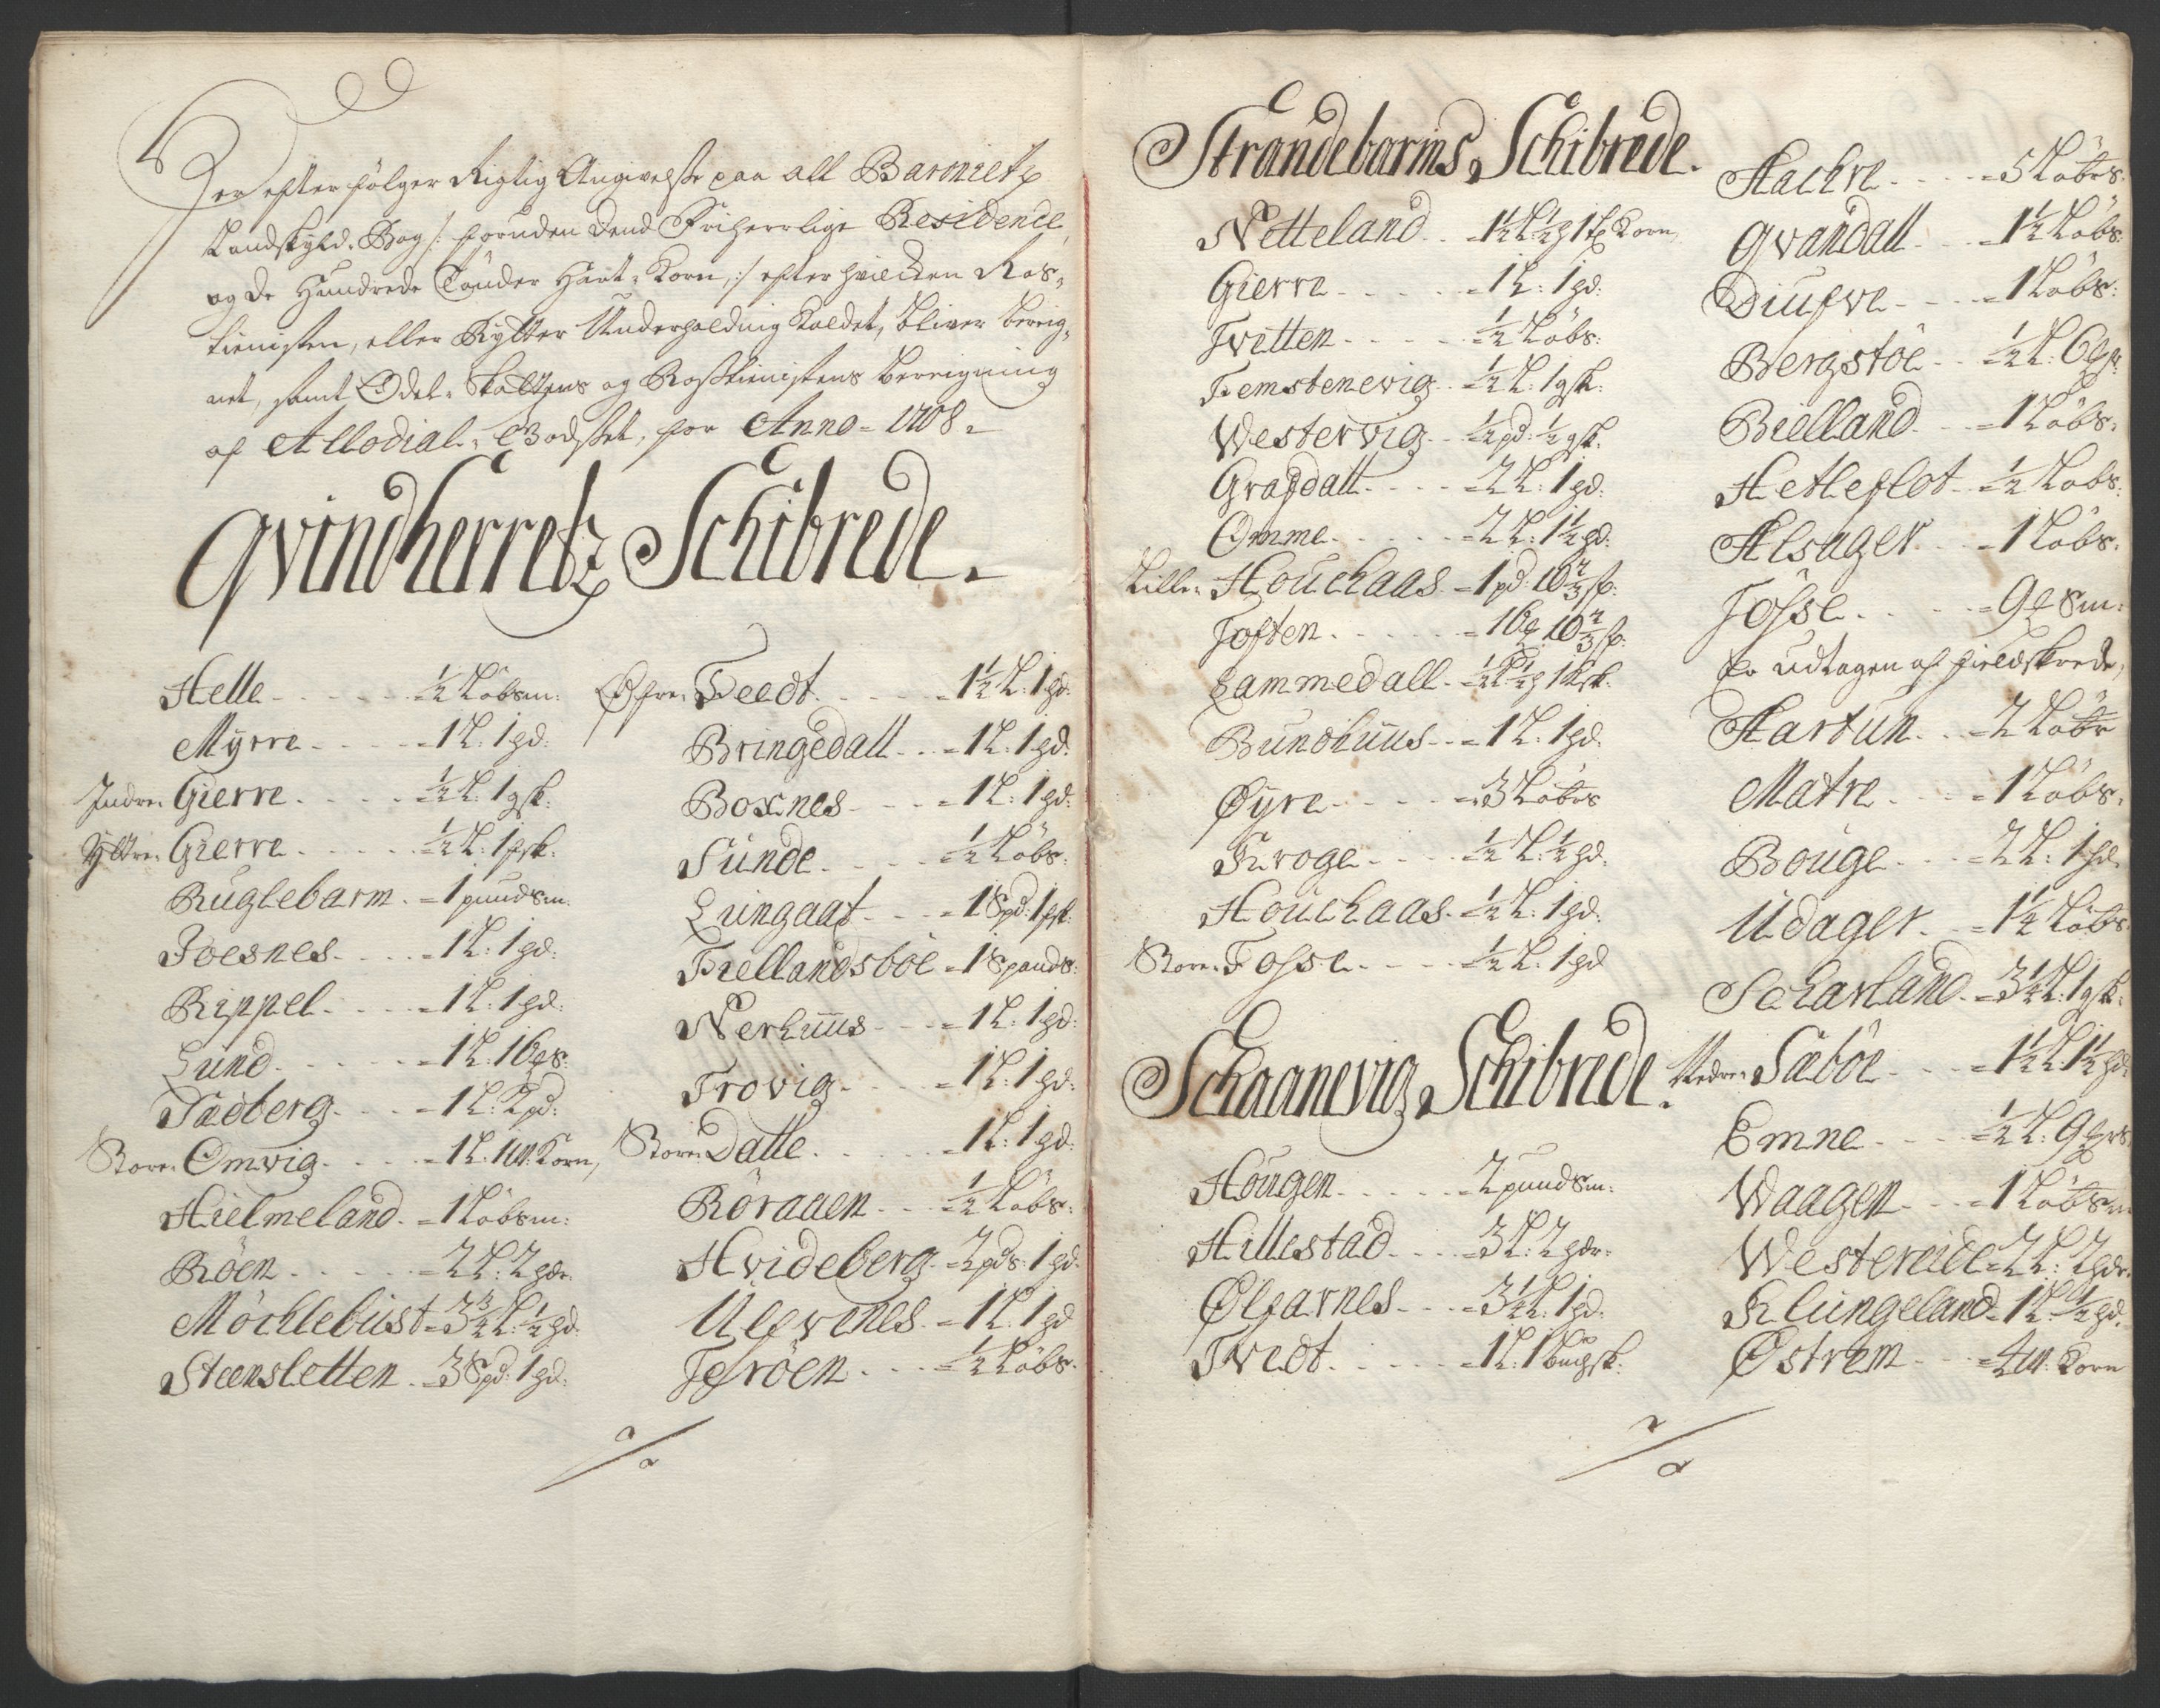 Her efter følger Rigtig Angivelsse paa all Baronietz
Landskyld-Bog /: foruden dend Friherrlige Residence,
og de Hundrede Tønder Hart-Korn, :/ efter hvilcken Ros-
tienisten, eller Rytter Underholdning kaldet, bliver bereig-
net, samt Odel-Skattens og Rosstienistens bereigning
af Allodial-Godsset, for Anno-1708-
Qvindherretz Schibrede.
Helle - ½ Løbsm:
Myrre - 1 L: 1 hd:
Indre- Gierre - ½ L: 1 gsk:
Yttre- Gierre - ½ L: 1 gsk:
Ruglebarm - 1 pundsm:
Joesnes - 1 L: 1 hd:
Rippel - 1 L: 1 hd:
Lund - 1 L: 16 es:
Sædberg - 1 L: 2 pd:
Store- Omvig - 1 L: 1 m: Korn,
Hielmeland - 1 Løbsm:
Røen - 2 L: 2 hder:
Möchlebust - 3¾ L: ½ hd:
Steensletten - 3 Spd: 1 hd:
Øfre- Teedt - 1½ L: 1 hd:
Bringedall - 1 L: 1 hd:
Boxnes - 1 L: 1 hd:
Sunde - ½ Løbs:
Lungaat - 1 Spd: 1 gsk:
Fiellandsbøe - 1 Spands:
Nerhuus - 1 L: 1 hd:
Trovig - 1 L: 1 hd:
Store- Dalle - 1 L: 1 hd:
Röraaen - ½ Løbs:
Hvideberg - 2 pds: 1 hd:
Ulfvenes - 1 L: 1 hd
Terøen - ½ Løbs:
Strandebarms Schibrede.
Netteland - 1½ L: ½ h 1 tf Korn,
Gierre - 1 L: 1 hd:
Tvetten - ½ Løbs:
Femstenevig - ½ L: 1 gsk:
Westervig - ½ pd: ½ gsk:
Grafdall - 2 L: 1 hd:
Omme - 2 L: 1½ hd:
Lille- Houchaas - 1 pd: 10⅔ sk:
Toften - 16 e 10⅔ sk:
Lammedall - ½ L: ½ h 1 ksk:
Bundhuus - 1 L: 1 hd.
Øyre - 3 Løbes
Kroge - ½ L: ½ hd:
Houchaas - ½ L: 1 hd:
Store- Fosse - ½ L: 1 hd
Schaanevig Schibrede.
Hougen - 2 pundsm:
Hillestad - 3 L: 2 hder:
Ølfarnes - 3½ L: 1 hd:
Tvedt - 1 L: 1 buchsk:
Hachre - 5 Løbes:
Qvandall - 1½ Løbs:
Diufve - 1 Løbs:
Bergstøe - ½ L: 6 hr
Bielland - 1 Løbs:
Hetleflot - ½ Løbs:
Alsager - 1 Løbs:
Fosse - 9 e Sm:
Er udtagen af fieldskrede,
Hartun - 2 Løbe
Matre - 1 Løbs:
Bouge - 2 L: 1 hd
Udager - 1½ Løbs
Scharland - 3½ L: 1 gsk:
Nedre- Sæbøe - 1½ L: 1½ hd:
Emne - ½ L: 9 hrs
Waagen - 1 Løbsm
Westereide - 2 L: 2 hdr.
Klungeland - 1 L: ½ hd.
Østrem - 4 m: Korn